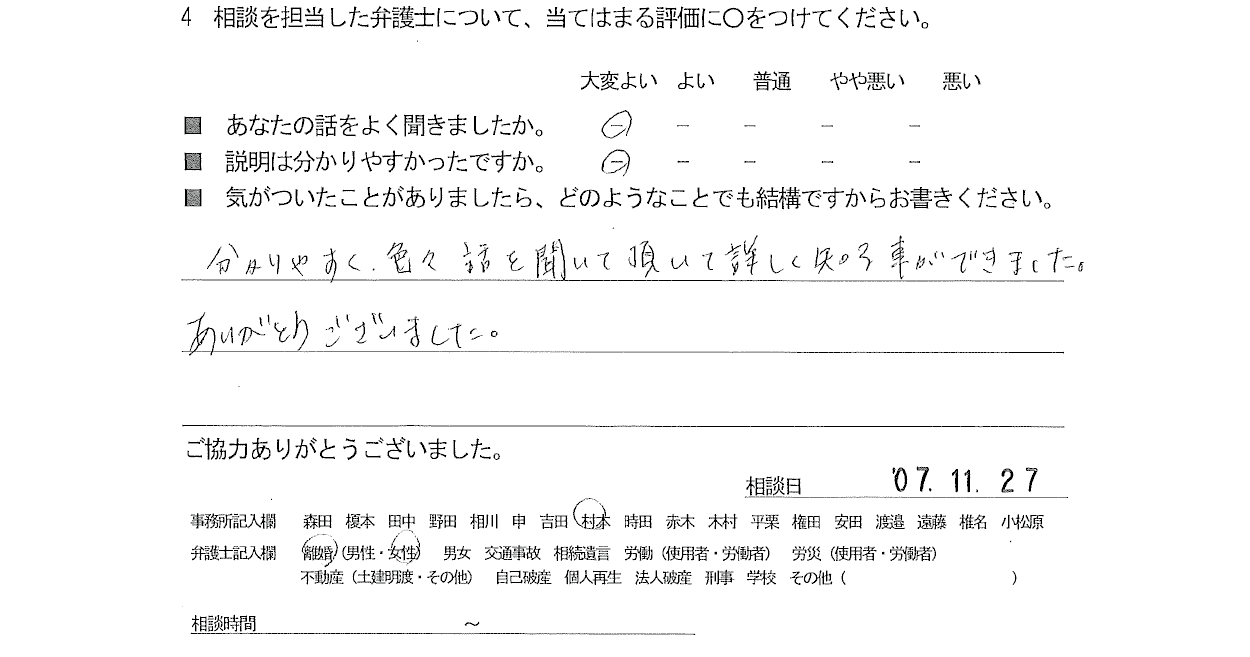 4 相談を担当した弁護士について、当てはまる評価に〇をつけてください。
大変よい よい 普通 やや悪い 悪い
■ あなたの話をよく聞きましたか。 － － － － －
■ 説明は分かりやすかったですか。 － － － － －
■ 気がついたことがありましたら、どのようなことでも結構ですからお書きください。
分かりやすく、色々話を聞いて頂いて詳しく知る事ができました。
ありがとうございました。
ご協力ありがとうございました。
相談日 '07.11.27
事務所記入欄 森田 榎本 田中 野田 相川 申 吉田 村本 時田 赤木 木村 平栗 権田 安田 渡邉 遠藤 椎名 小松原
弁護士記入欄 離婚（男性・女性） 男女 交通事故 相続遺言 労働（使用者・労働者） 労災（使用者・労働者）
不動産（土建明渡・その他） 自己破産 個人再生 法人破産 刑事 学校 その他（ ）
相談時間 ～